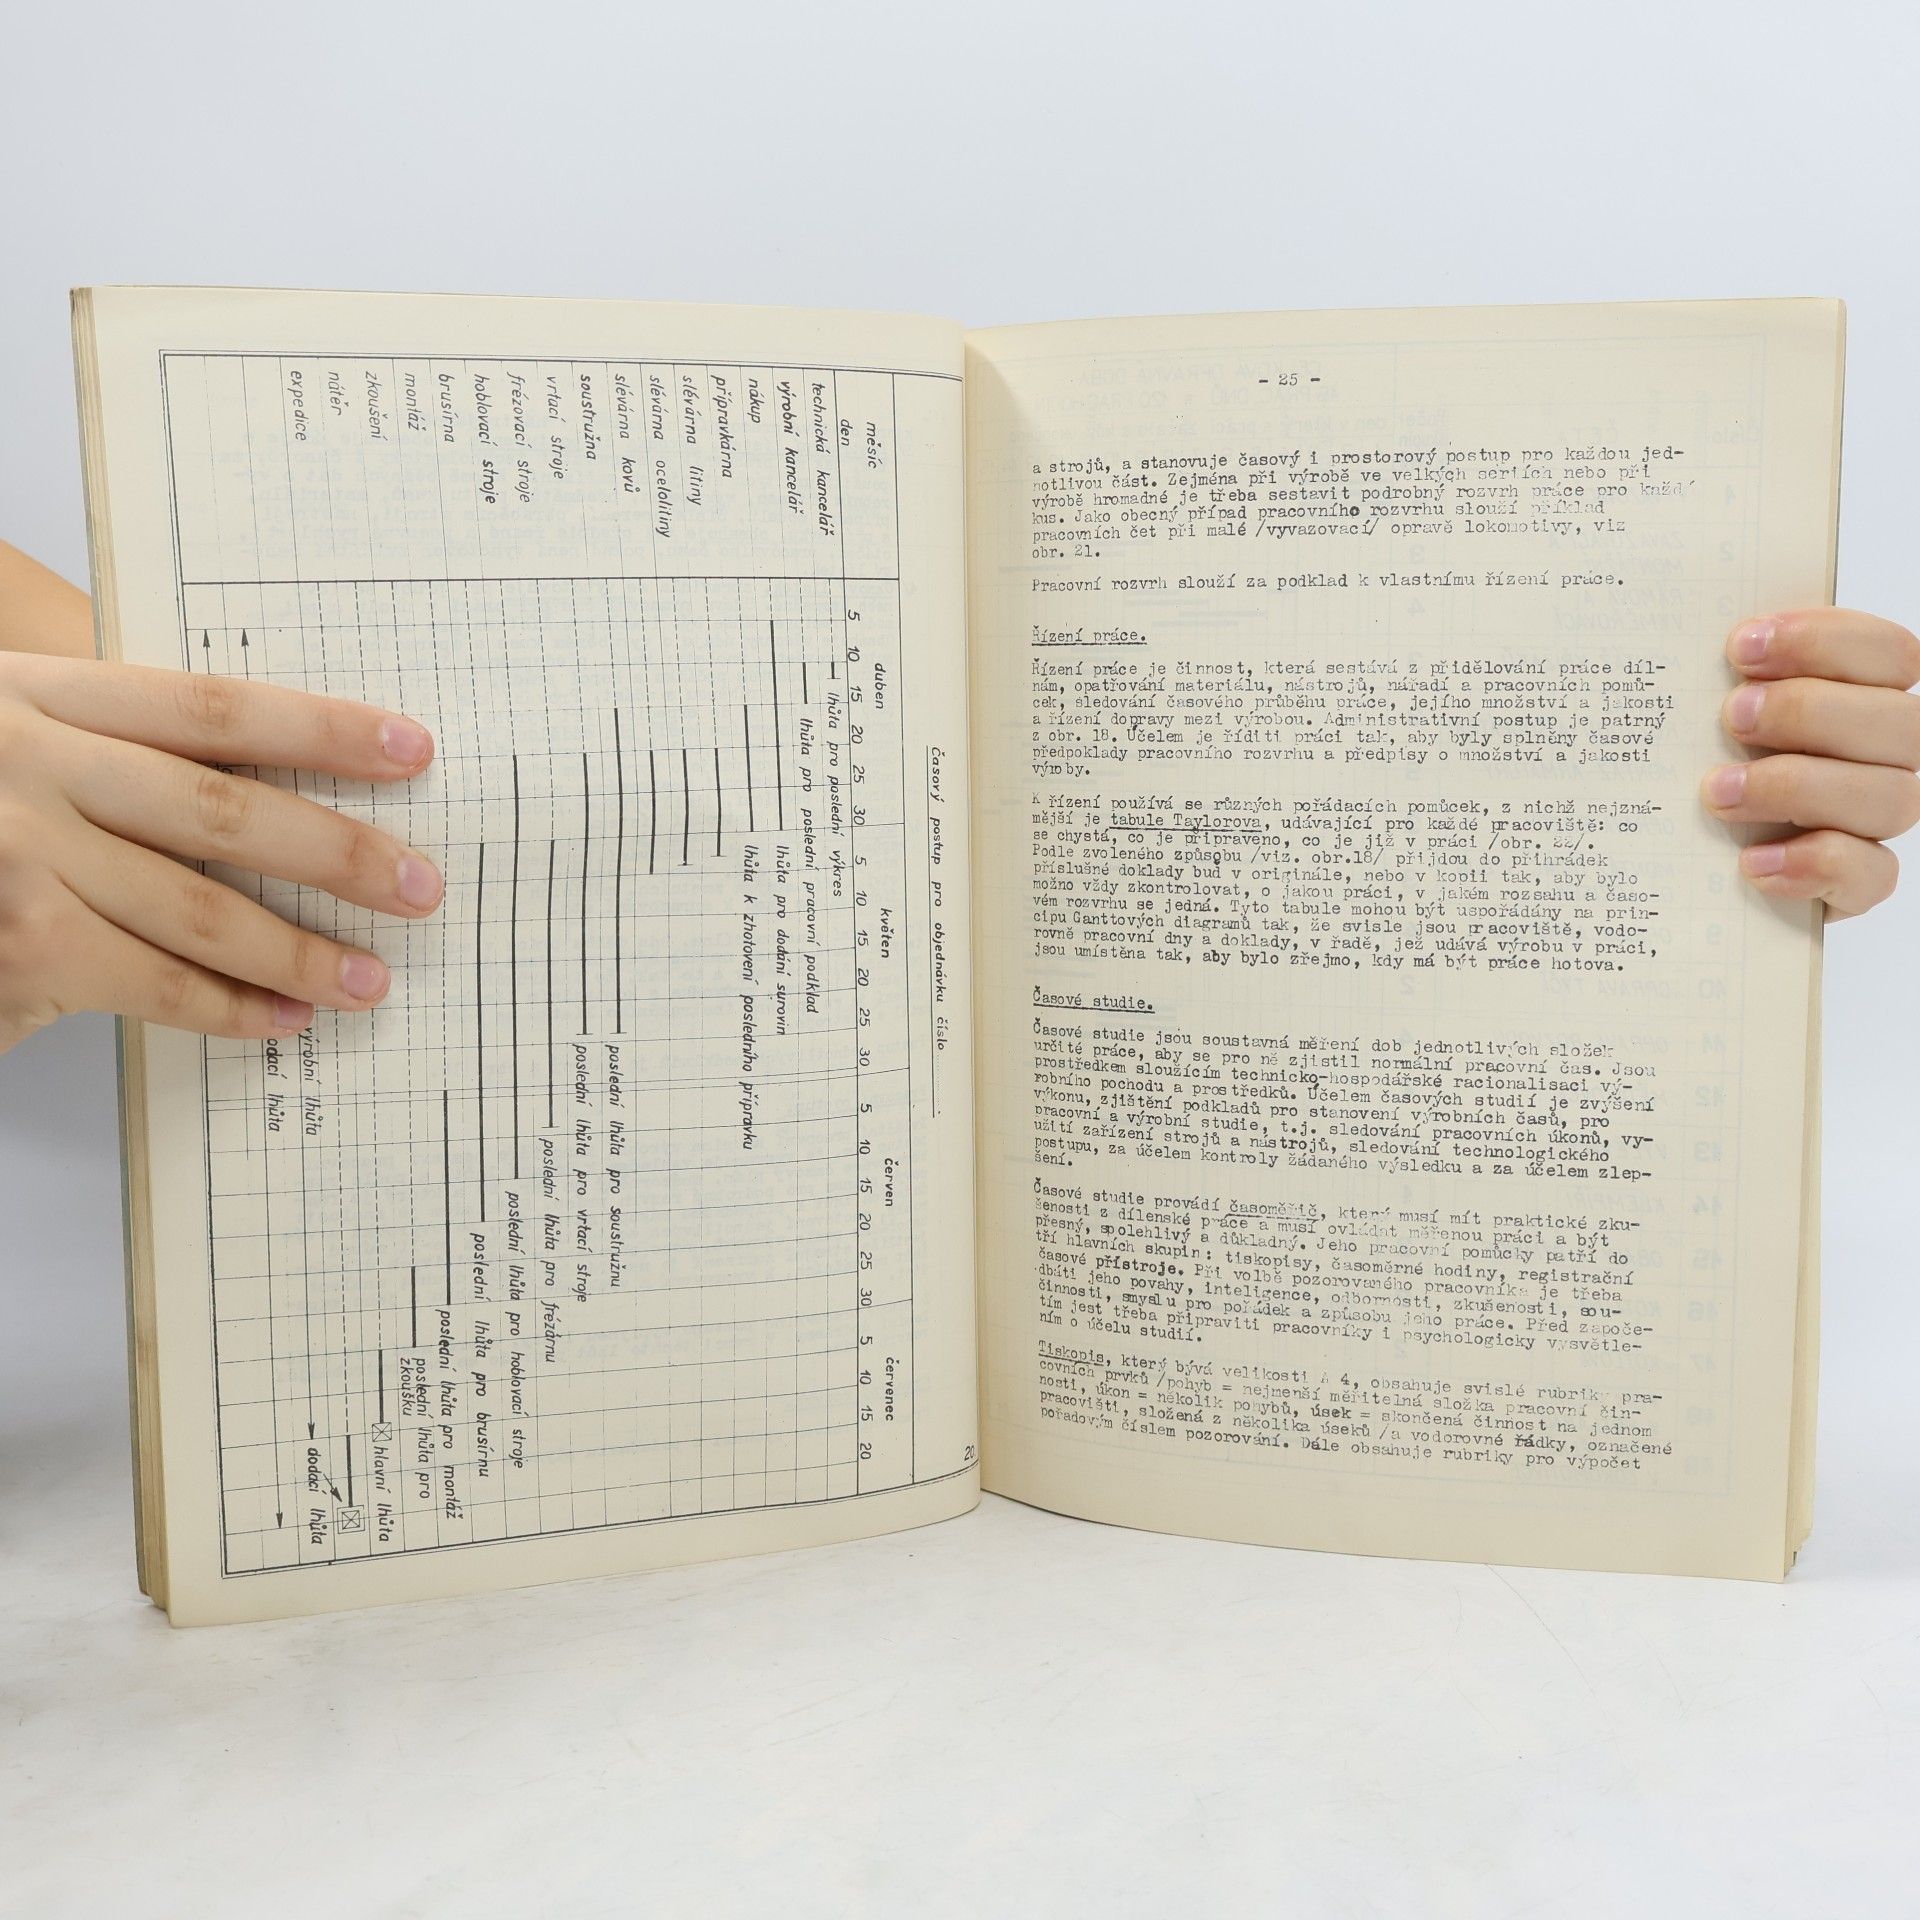 Časový postup pro objednávku číslo
20
měsíc
den
duben
květen
červen
červenec
5 10 15 20 25 30 5 10 15 20 25 30 5 10 15 20 25 30 5 10 15 20
technická kancelář
lhůta pro poslední výkres
výrobní kancelář
lhůta pro poslední pracovní podklad
nákup
lhůta pro dodání surovin
přípravkárna
lhůta k zhotovení posledního přípravku
slévárna litiny
slévárna ocelolitiny
slévárna kovů
poslední lhůta pro soustružnu
soustružna
poslední lhůta pro vrtací stroje
vrtací stroje
poslední lhůta pro frézárnu
frézovací stroje
poslední lhůta pro hoblovací stroje
hoblovací stroje
poslední lhůta pro brusírnu
brusírna
poslední lhůta pro montáž
montáž
poslední lhůta pro
zkoušku
zkoušení
hlavní lhůta
nátěr
expedice
výrobní lhůta
dodací lhůta
lhůta
- 25 -
a strojů, a stanovuje časový i prostorový postup pro každou jed-
notlivou část. Zejména při výrobě ve velkých seriích nebo při
výrobě hromadné je třeba sestavit podrobný rozvrh práce pro každý
kus. Jako obecný případ pracovního rozvrhu slouží příklad
pracovních čet při malé /vyvazovací/ opravě lokomotivy, viz
obr. 21.
Pracovní rozvrh slouží za podklad k vlastnímu řízení práce.
Řízení práce.
Řízení práce je činnost, která sestává z přidělování práce díl-
nám, opatřování materiálu, nástrojů, nářadí a pracovních pomů-
cek, sledování časového průběhu práce, jejího množství a jakosti
a řízení dopravy mezi výrobou. Administrativní postup je patrný
z obr. 18. Účelem je říditi práci tak, aby byly splněny časové
předpoklady pracovního rozvrhu a předpisy o množství a jakosti
výroby.
K řízení používá se různých pořádacích pomůcek, z nichž nejzná-
mější je tabule Taylorova, udávající pro každé pracoviště: co
se chystá, co je připraveno, co je již v práci /obr. 22/.
Podle zvoleného způsobu /viz. obr.18/ přijdou do přihrádek
příslušné doklady buď v originále, nebo v kopii tak, aby bylo
možno vždy zkontrolovat, o jakou práci, v jakém rozsahu a časo-
vém rozvrhu se jedná. Tyto tabule mohou být uspořádány na prin-
cipu Ganttových diagramů tak, že svisle jsou pracoviště, vodo-
rovně pracovní dny a doklady, v řadě, jež udává výrobu v práci,
jsou umístěna tak, aby bylo zřejmo, kdy má být práce hotova.
Časové studie.
Časové studie jsou soustavná měření dob jednotlivých složek
určité práce, aby se pro ně zjistil normální pracovní čas. Jsou
prostředkem sloužícím technicko-hospodářské racionalisaci vý-
robního pochodu a prostředků. Účelem časových studií je zvýšení
výkonu, zjištění podkladů pro stanovení výrobních časů, pro
pracovní a výrobní studie, t.j. sledování pracovních úkonů, vy-
užití zařízení strojů a nástrojů, sledování technologického
postupu, za účelem kontroly žádaného výsledku a za účelem zlep-
šení.
Časové studie provádí časoměřič, který musí mít praktické zku-
šenosti z dílenské práce a musí ovládat měřenou práci a být
přesný, spolehlivý a důkladný. Jeho pracovní pomůcky patří do
tří hlavních skupin: tiskopisy, časoměrné hodiny, registrační
časové přístroje. Při volbě pozorovaného pracovníka je třeba
dbáti jeho povahy, inteligence, odbornosti, zkušenosti, sou-
činnosti, smyslu pro pořádek a způsobu jeho práce. Před započe-
tím jest třeba připraviti pracovníky i psychologicky vysvětle-
ním o účelu studií.
Tiskopis, který bývá velikosti A 4, obsahuje svislé rubriky pra-
covních prvků /pohyb = nejmenší měřitelná složka pracovní čin-
nosti, úkon = několik pohybů, úsek = skončená činnost na jednom
pracovišti, složená z několika úseků /a vodorovné řádky, označené
pořadovým číslem pozorování. Dále obsahuje rubriky pro výpočet